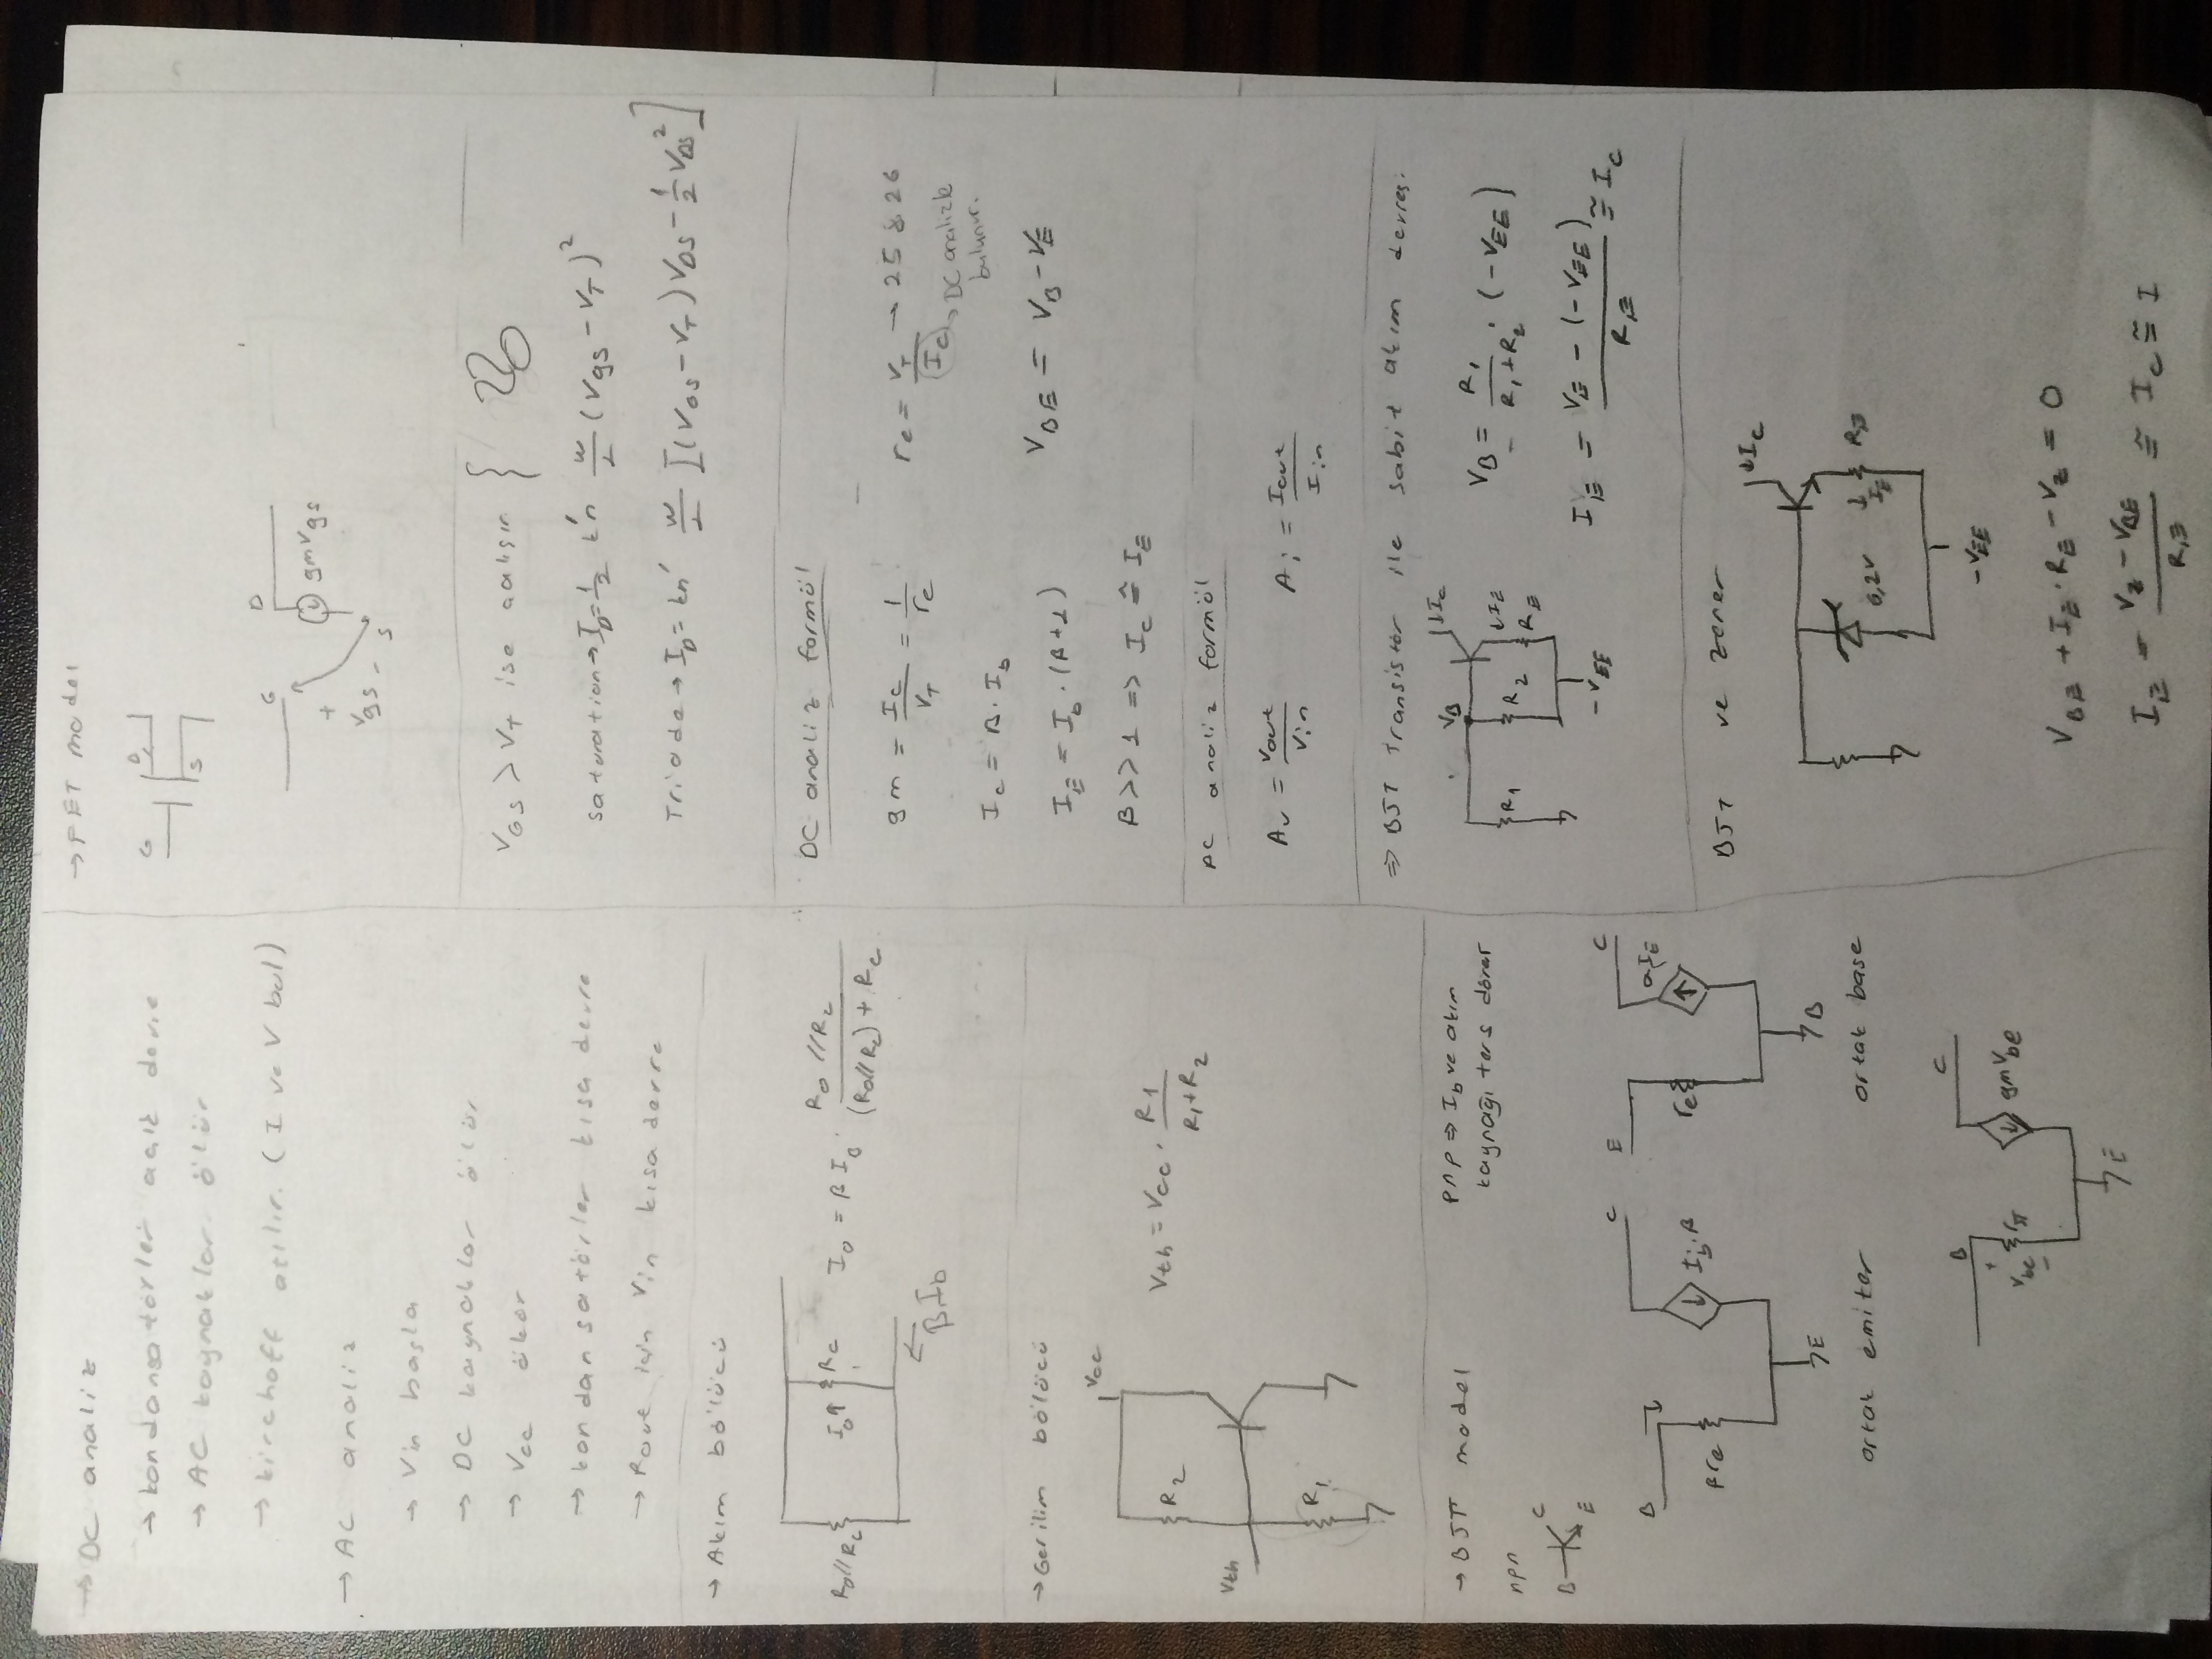 → DC analiz
→ kondansatörler açık devre
→ AC kaynaklar ölür
→ kirchoff atılır. (I ve V bul)
→ AC analiz
→ Vin başla
→ DC kaynaklar ölür
→ Vcc
→ kondansatörler kısa devre
→ Rout için Vin kısa devre
→ Akım bölücü
Ro//Rc
Io↑
Rc
β.Ib
Io = β Ib · Ro//Rc / ((Ro//Rc) + Rc)
→ Gerilim bölücü
Vcc
R2
Vth
R1
Vth = Vcc · R1 / (R1+R2)
→ BJT model
pnp ⇒ Ib ve akım
kaynağı ters döner
npn
B
C
E
B
βre
C
Ib·β
E
ortak emiter
E
re
C
αIE
B
ortak base
B
+
Vbe
-
rπ
C
gmVbe
E
→ FET model
G
D
S
G
D
gmVgs
+
Vgs
-
S
VGS > VT ise çalışır {
saturation → ID = 1/2 k'n W/L (Vgs - VT)²
Triode → ID = kn' W/L [(VGS - VT) VDS - 1/2 VDS²]
DC analiz formül
gm = Ic/VT = 1/re
re = VT/Ic → 25 & 26
→ DC analizle
bulunur.
Ic = β. Ib
IE = Ib . (β+1)
VBE = VB - VE
β >> 1 => Ic ≅ IE
AC analiz formül
Av = Vout/Vin
Ai = Iout/Iin
⇒ BJT Transistör ile sabit akım devresi
VB
↓Ic
R1
R2
↓IE
RE
-VEE
VB = R1/(R1+R2) . (-VEE)
IE = (VE - (-VEE))/RE ≅ Ic
BJT ve zener
↓Ic
6,2V
↓IE
RE
-VEE
VBE + IE . RE - Vz = 0
IE = (Vz - VBE)/RE ≅ Ic ≅ I